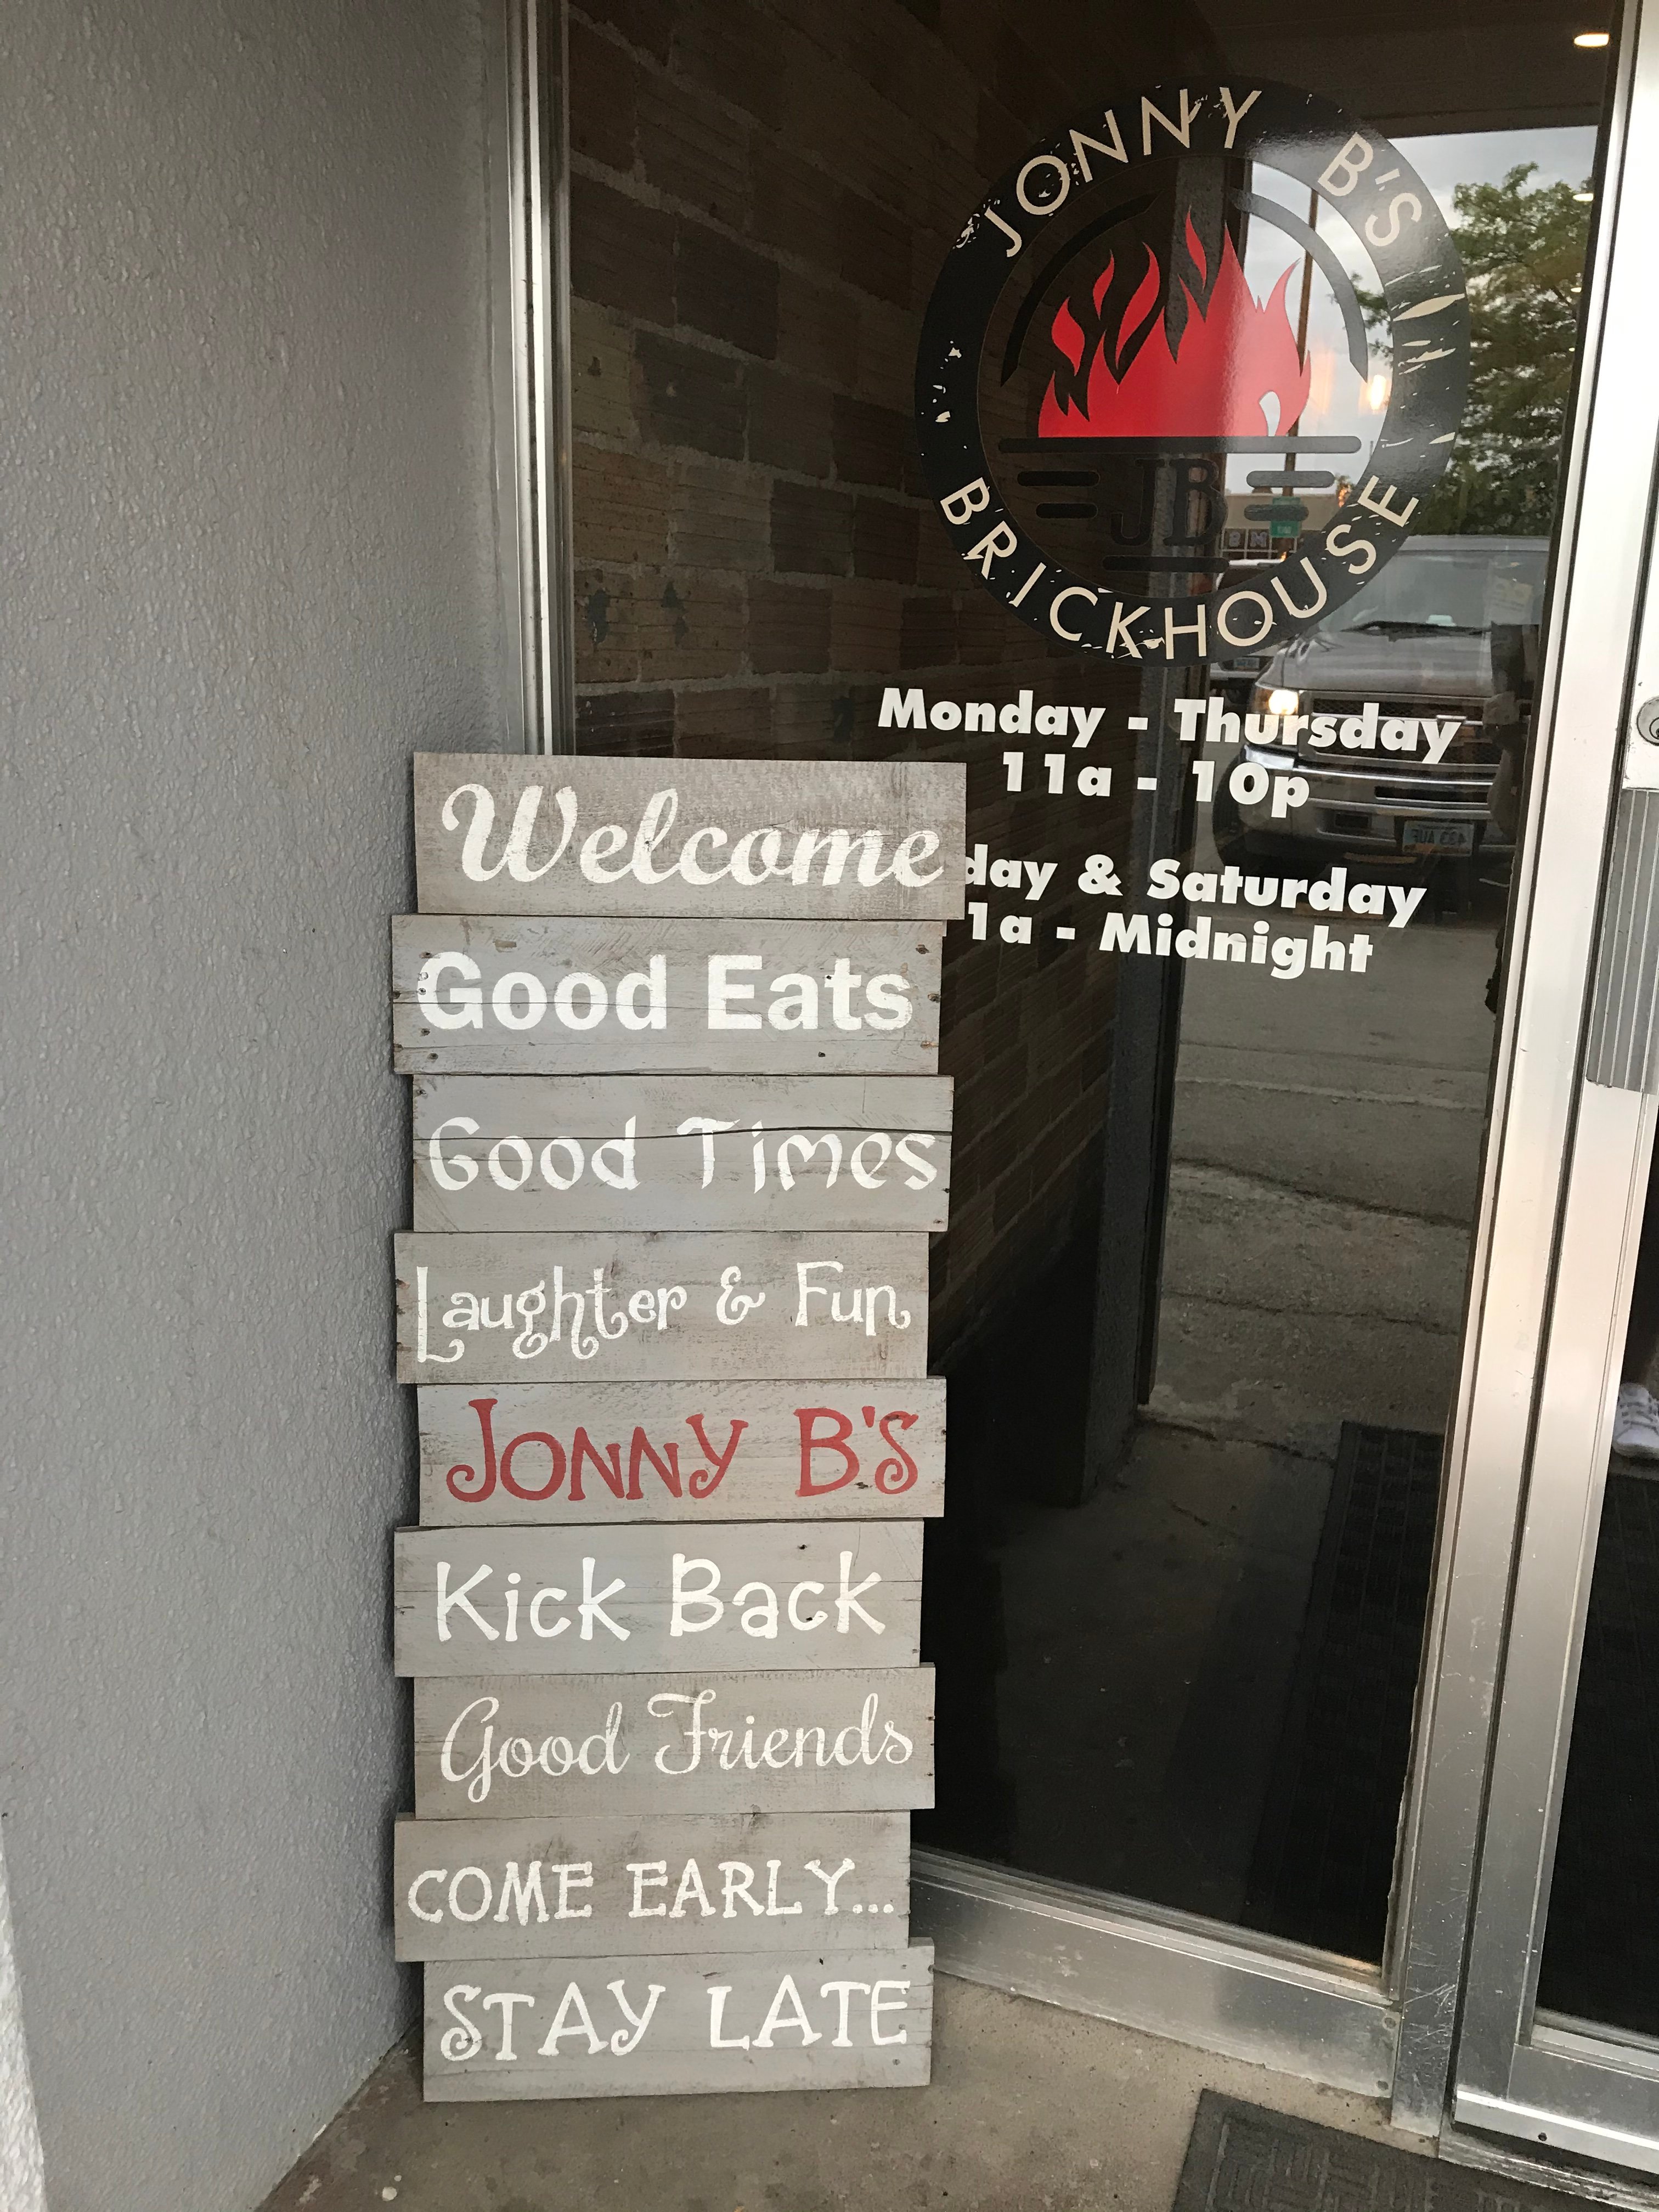 JONNY B'S
JB
BRICKHOUSE
Monday - Thursday
11a - 10p
day & Saturday
1a - Midnight
Welcome
Good Eats
Good Times
Laughter & Fun
JONNY B'S
Kick Back
Good Friends
COME EARLY...
STAY LATE